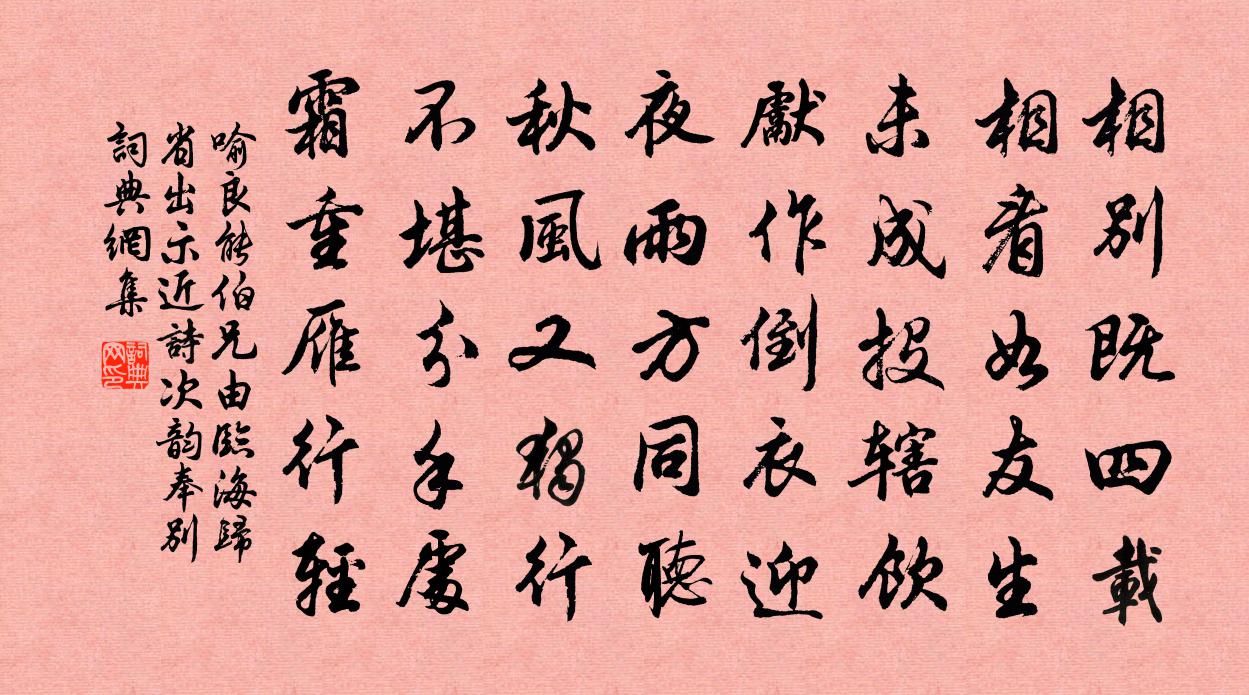 相別既四載
相看如友生
未成投轄飲
獻作倒衣迎
夜雨方同聽
秋風又獨行
不堪分手處
霜重雁行輕
喻良能伯兄由臨海歸
省出示近詩次韵奉別
詞典網集
詞典
网印